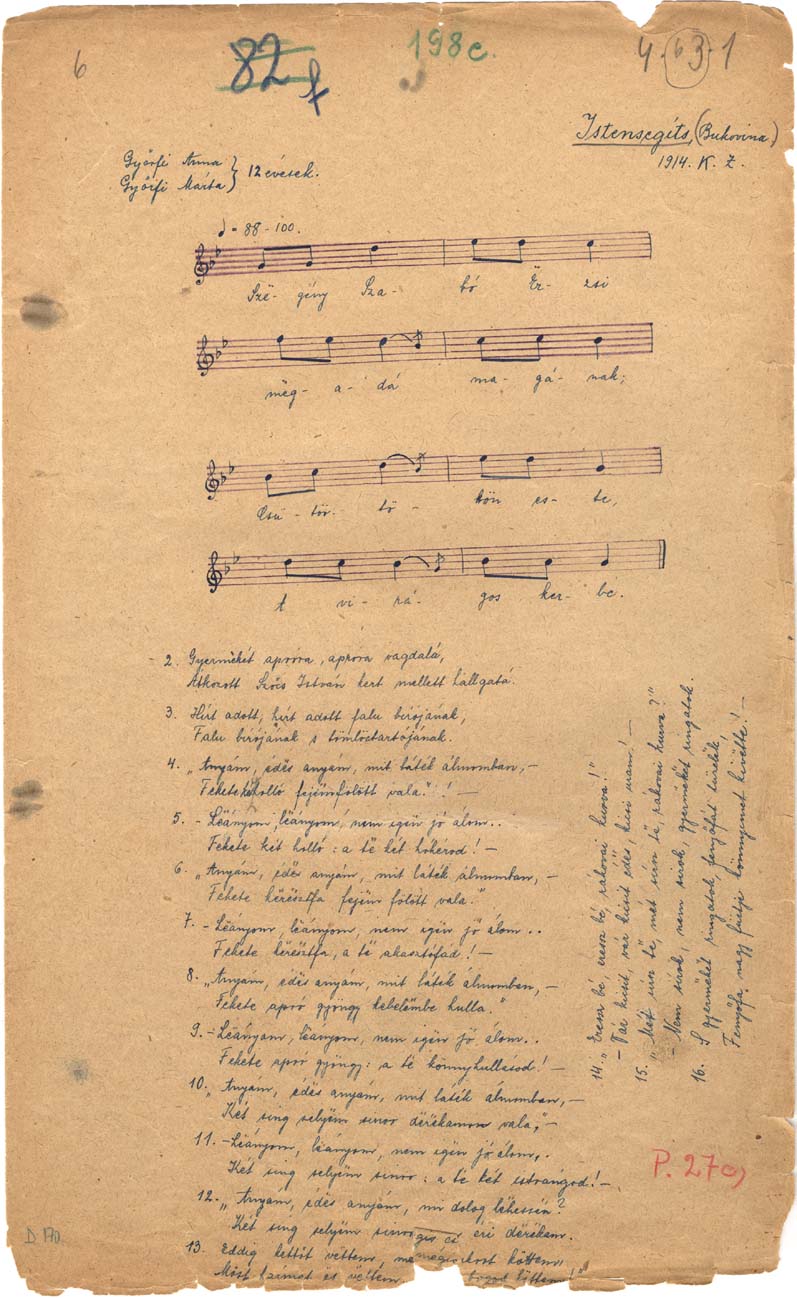 6
82
f
198c.
4.63.1
Istensegíts, (Bukovina)
1914. K. Z.
Győrfi Anna
Győrfi Márta } 12 évesek.
♩ = 88-100.
Szĕ- gény Sza- bó Ĕr- zsi
mĕg- a- dá ma- gá- nak;
Csü- tör- tö- kön es- te,
A vi- rá- gos ker- bé.
2. Gyermĕkét apróra, apróra vagdalá,
Átkozott Szőcs István kert mellett hallgatá.
3. Hírt adott, hírt adott falu bírójának,
Falu bírójának s tömlöctartójának.
4. „Anyám, édĕs anyám, mit láték álmomban, –
Fekete két holló fejĕm fölött vala." ! –
5. – Lĕányom, lĕányom! nem igĕn jó álom..
Fekete két holló: a tĕ két hóhérod! –
6. „Anyám, édĕs anyám, mit láték álmomban, –
Fekete kĕrĕsztfa fejĕm fölött vala."
7. – Lĕányom, lĕányom, nem igĕn jó álom..
Fekete kĕrĕsztfa, a tĕ akasztófád! –
8. „Anyám, édĕs anyám, mit láték álmomban, –
Fekete apró gyöngy kebelĕmbe hulla."
9. – Lĕányom, lĕányom, nem igĕn jó álom..
Fekete apró gyöngy: a tĕ könnyhullásod! –
10. „Anyám, édĕs anyám, mit láték álmomban, –
Két sing selyĕm sinor dĕrĕkamon vala," –
11. – Lĕányom, lĕányom, nem igĕn jó álom,.
Két sing selyĕm sinor: a tĕ két istrángod! –
12. „Anyám, édĕs anyám, mi dolog lĕhessĕn?
Két sing selyĕm sinor ... éri dĕrĕkam.
13. Eddig kettőt vĕttem,
Most hármat is vĕttem,
14. „Eressz bé, eressz bé, rákovai kurva!"
– Vár kicsit, vár kicsit édĕs, kicsi uram! –
15. „Mét sírsz tĕ, mét sírsz tĕ, rákovai kurva?"
– Nem sírok, nem sírok, gyermĕkĕt ringatok.
16. S gyermĕkĕt ringatok, fenyőfát tüzelĕk,
Fenyőfa nagy füstje könnyimet kivĕtte! –
P. 270
D 170.